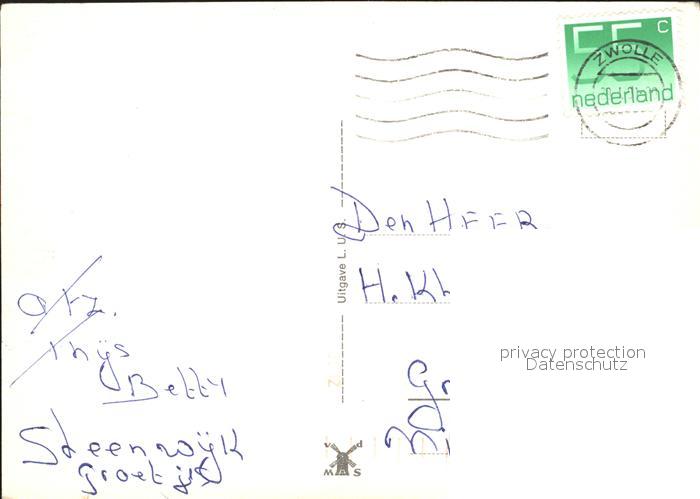 55 c
nederland
ZWOLLE
Uitgave L. U. S.
Den HEER
H. Kl
Gr
privacy protection
Datenschutz
Thijs
Betty
Steenwijk
Groetjes
v d
MAS